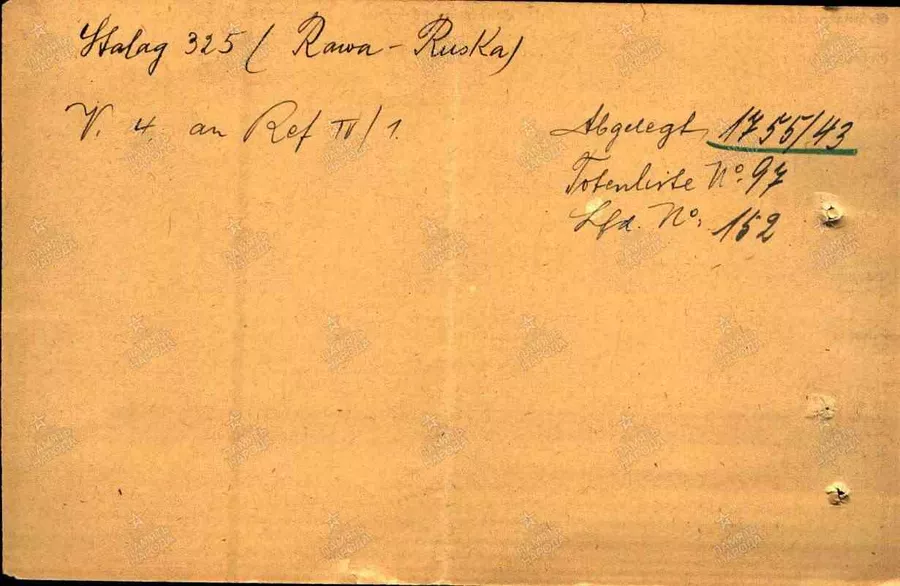 Stalag 325 (Rawa-Ruska)
V. 4. an Ref IV/1.
Abgelegt 1755/43
Totenliste No. 97
Lfd. No. 152